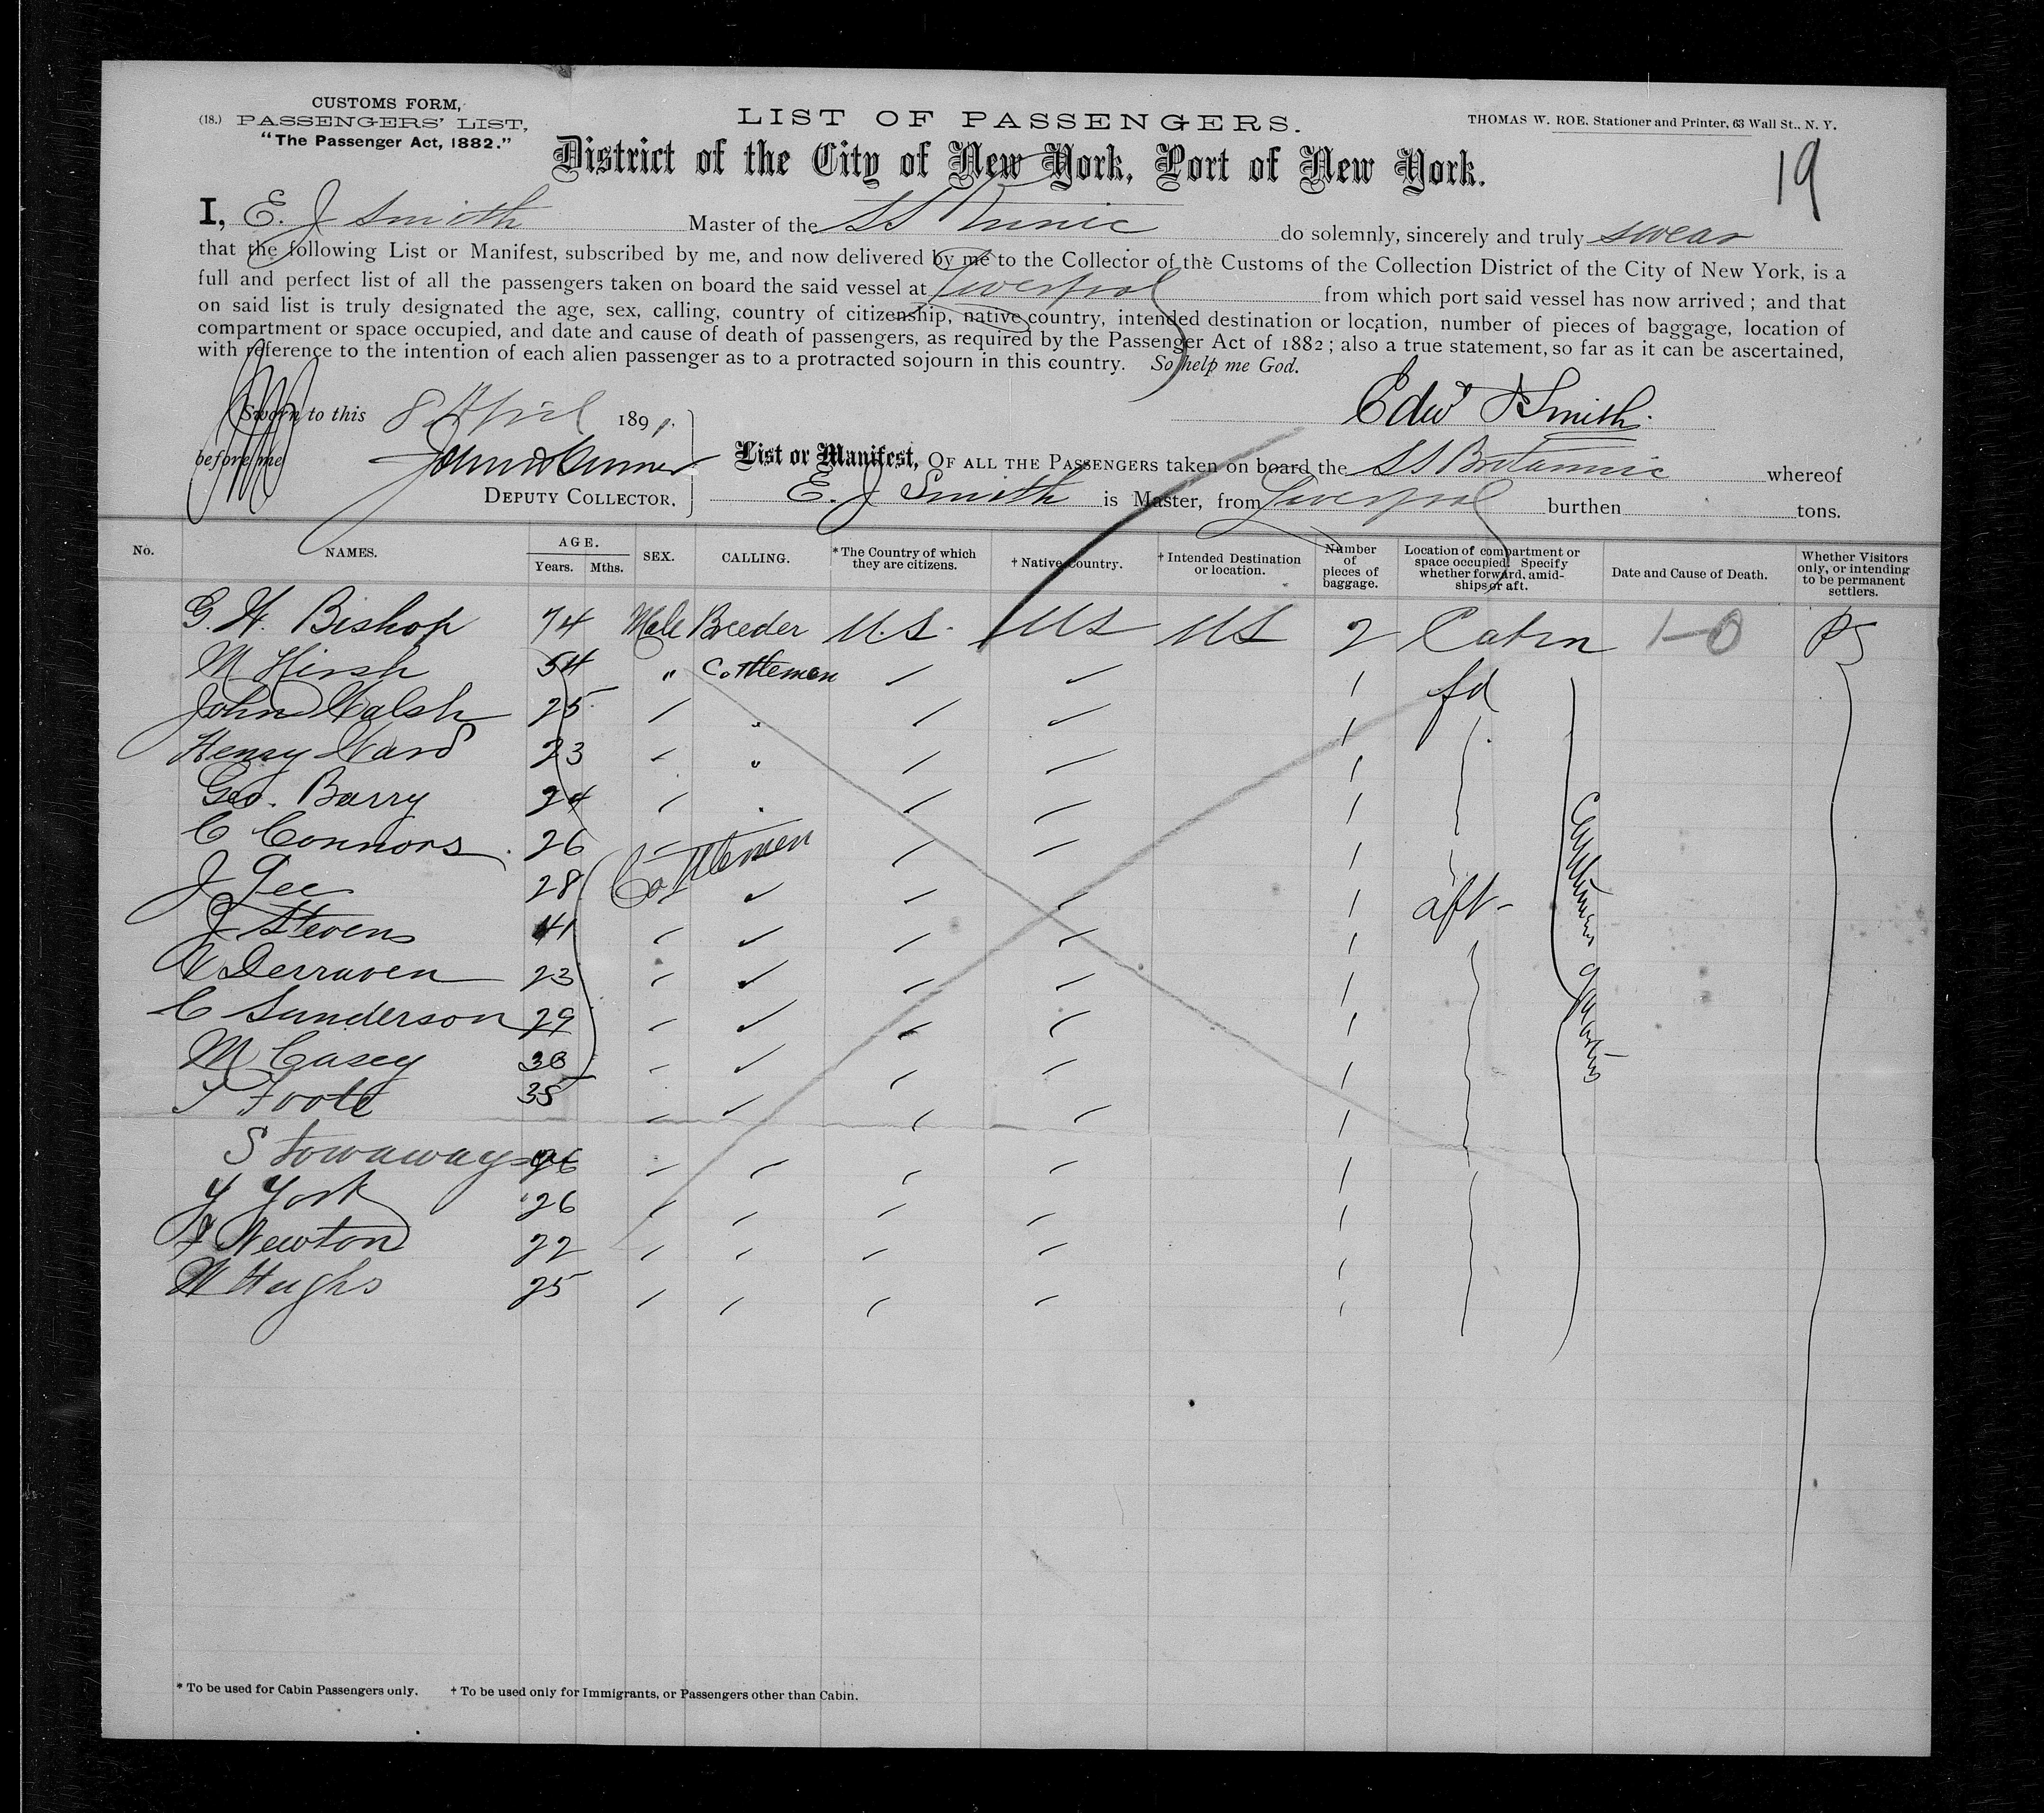 CUSTOMS FORM,
(18.) PASSENGERS' LIST,
"The Passenger Act, 1882."
LIST OF PASSENGERS.
THOMAS W. ROE, Stationer and Printer, 63 Wall St., N. Y.
District of the City of New York, Port of New York.
19
I, E. J Smith Master of the SS Runic do solemnly, sincerely and truly swear
that the following List or Manifest, subscribed by me, and now delivered by me to the Collector of the Customs of the Collection District of the City of New York, is a
full and perfect list of all the passengers taken on board the said vessel at Liverpool from which port said vessel has now arrived; and that
on said list is truly designated the age, sex, calling, country of citizenship, native country, intended destination or location, number of pieces of baggage, location of
compartment or space occupied, and date and cause of death of passengers, as required by the Passenger Act of 1882; also a true statement, so far as it can be ascertained,
with reference to the intention of each alien passenger as to a protracted sojourn in this country. So help me God.
Sworn to this 8 April 1891.
Edwd J Smith
before me
DEPUTY COLLECTOR.
List or Manifest, OF ALL THE PASSENGERS taken on board the SS Britannic whereof
E. J Smith is Master, from Liverpool burthen tons.
No. NAMES. AGE. Years. Mths. SEX. CALLING. *The Country of which they are citizens. †Native Country. †Intended Destination or location. Number of pieces of baggage. Location of compartment or space occupied. Specify whether forward, amidships or aft. Date and Cause of Death. Whether Visitors only, or intending to be permanent settlers.
G. H. Bishop 74 Male Breeder U.S. US US 2 Cabin 1-0 PS
M Hirsh 54 " Cattlemen / / / fd
John Walsh 25 / " / / /
Henry Ward 23 / " / / /
Geo. Barry 24 / " / / /
C Connors 26 / Cattlemen / / /
J Gee 28 / / / / aft
J Stevens 41 / / / / /
W Derraven 23 / / / / /
C Sunderson 29 / / / / /
M Casey 38 / / / / /
T Foote 35 / / / / /
Stowaways 26 / / / / /
Y York 26 / / / / /
F Newton 22 / / / / /
W Hughs 25 / / / / /
Cattlemen quarters
* To be used for Cabin Passengers only. † To be used only for Immigrants, or Passengers other than Cabin.